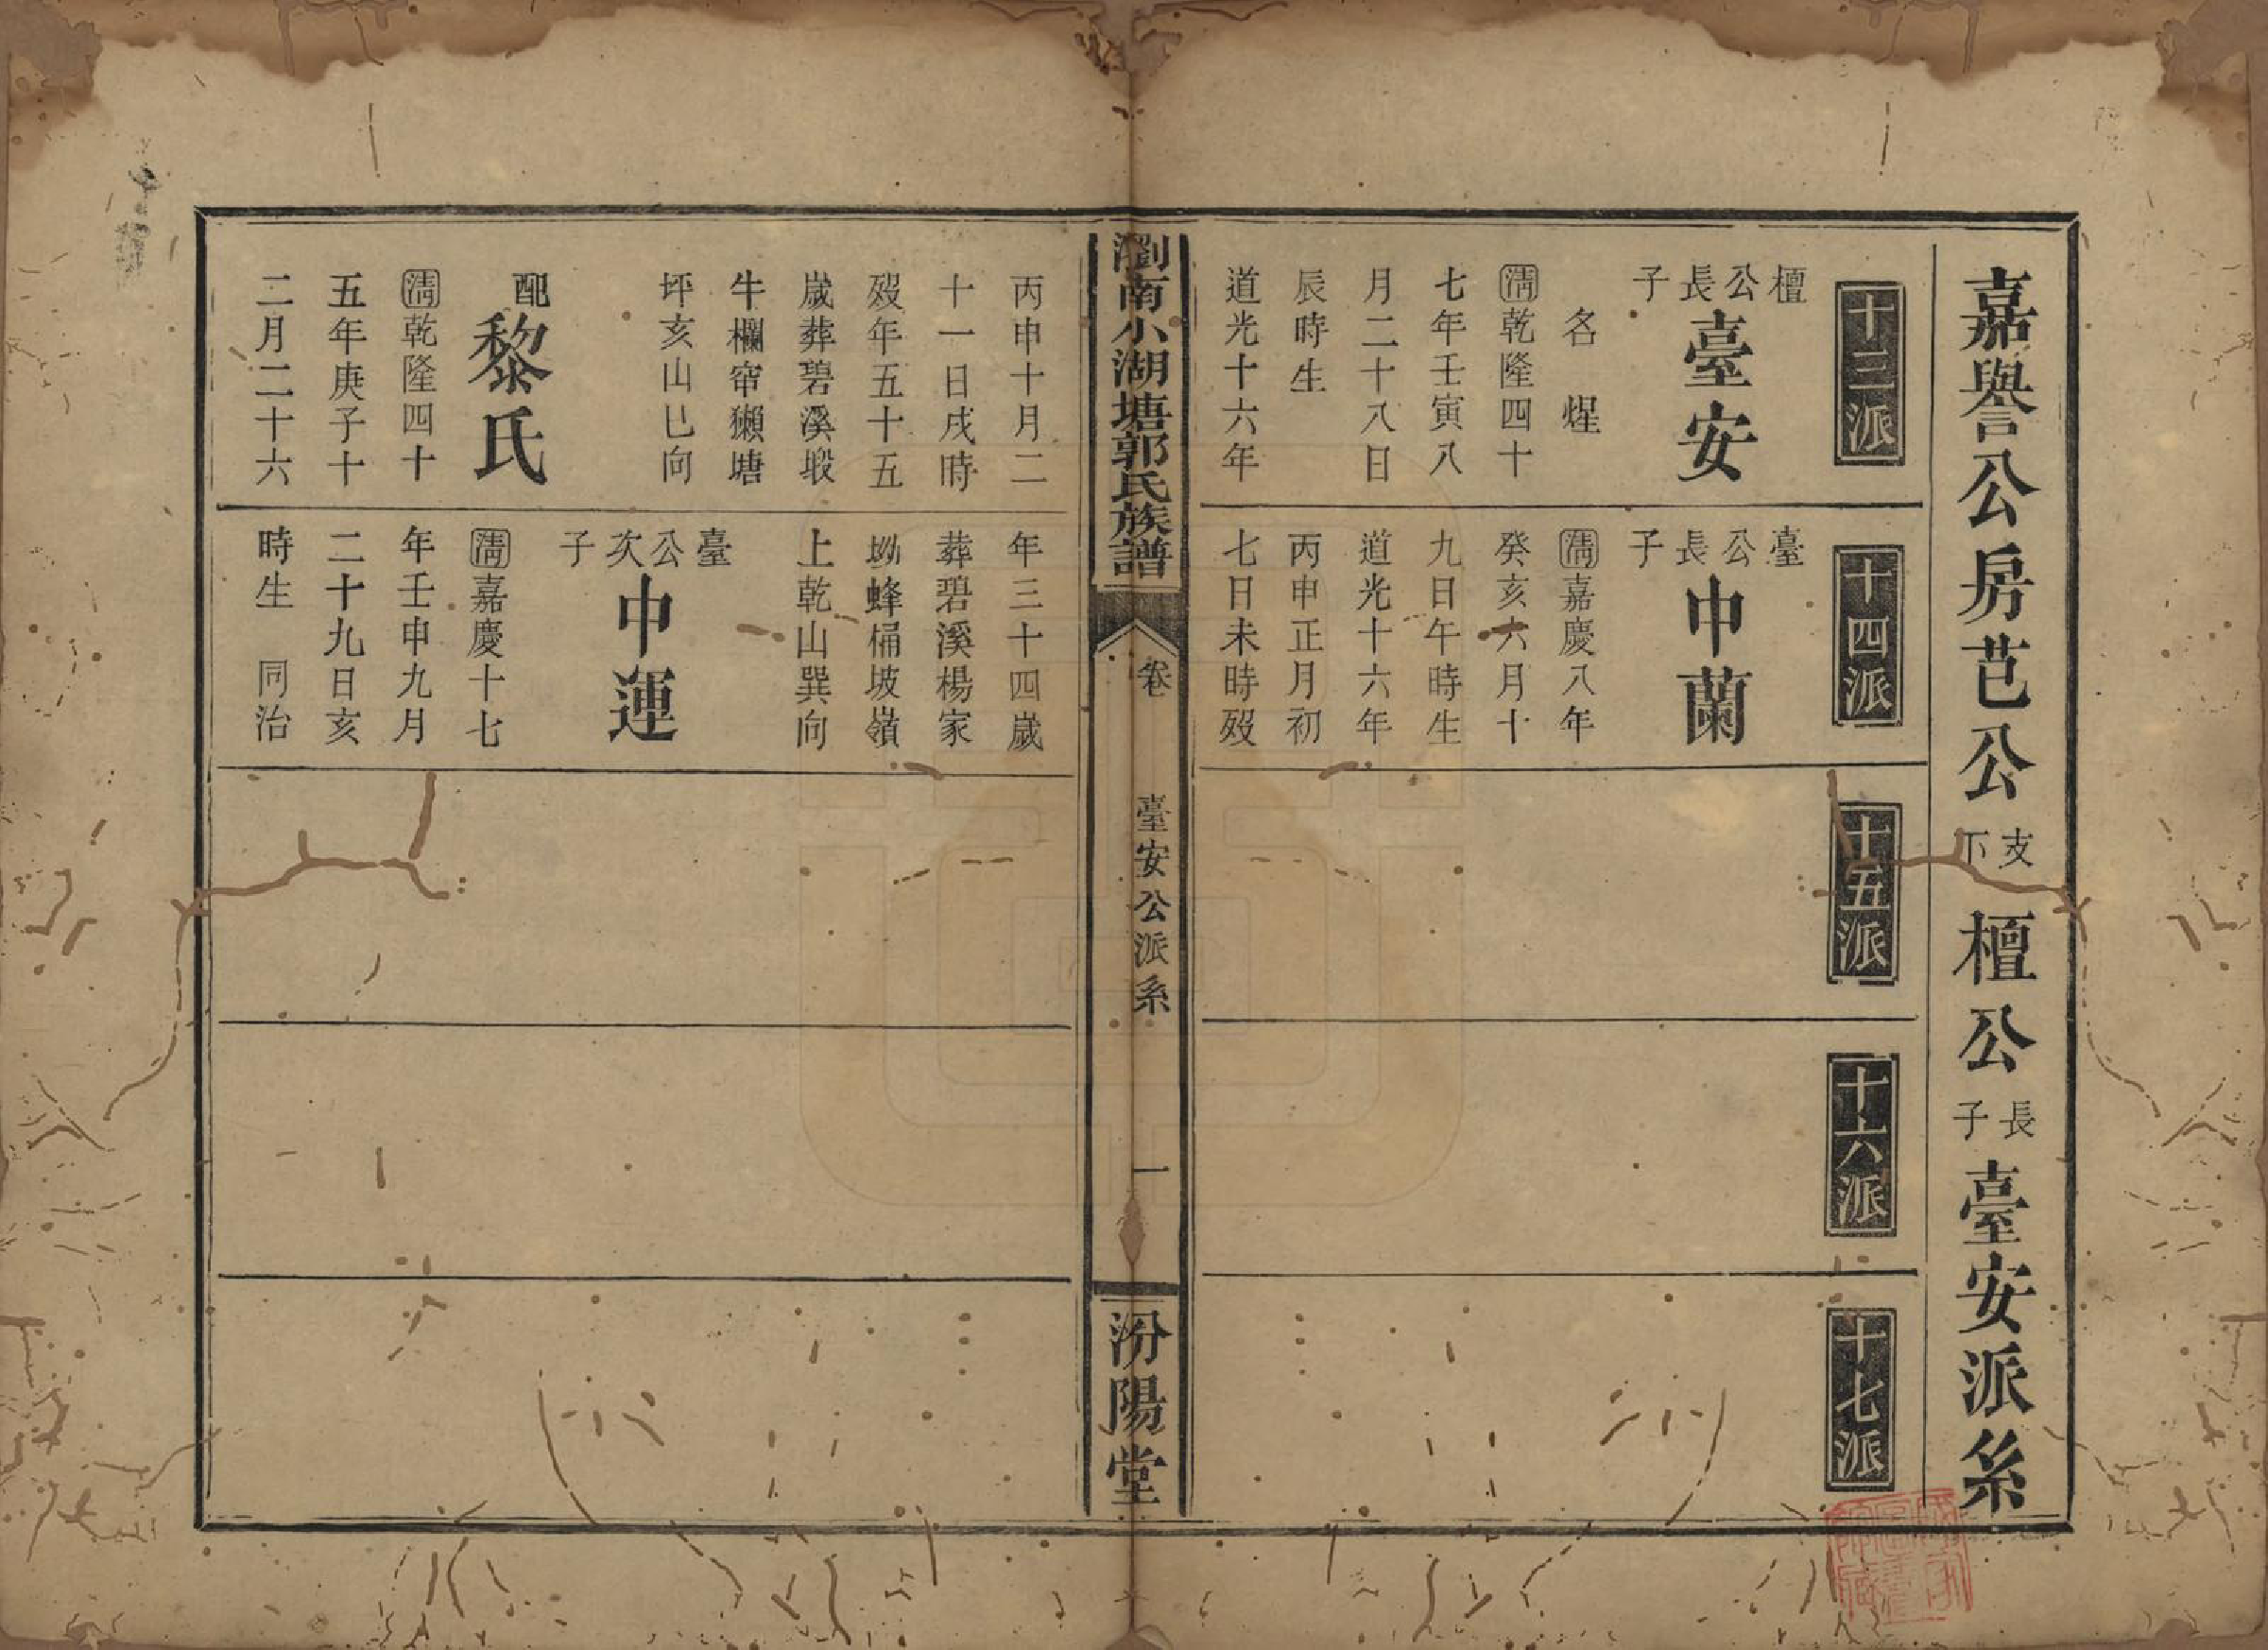 嘉譽公房芑公支下檀公長子臺安派系
十三派
檀公長子臺安
名煋
清乾隆四十
七年壬寅八
月二十八日
辰時生
道光十六年
十四派
臺公長子中蘭
清嘉慶八年
癸亥六月十
九日午時生
道光十六年
丙申正月初
七日未時歿
十五派
十六派
十七派
瀏南小湖塘郭氏族譜
卷
臺安公派系
一
汾陽堂
丙申十月二
十一日戌時
歿年五十五
歲葬碧溪塅
牛欄窂獺塘
坪亥山巳向
配黎氏
清乾隆四十
五年庚子十
二月二十六
年三十四歲
葬碧溪楊家
坳蜂桶坡嶺
上乾山巽向
臺公次子中運
清嘉慶十七
年壬申九月
二十九日亥
時生 同治